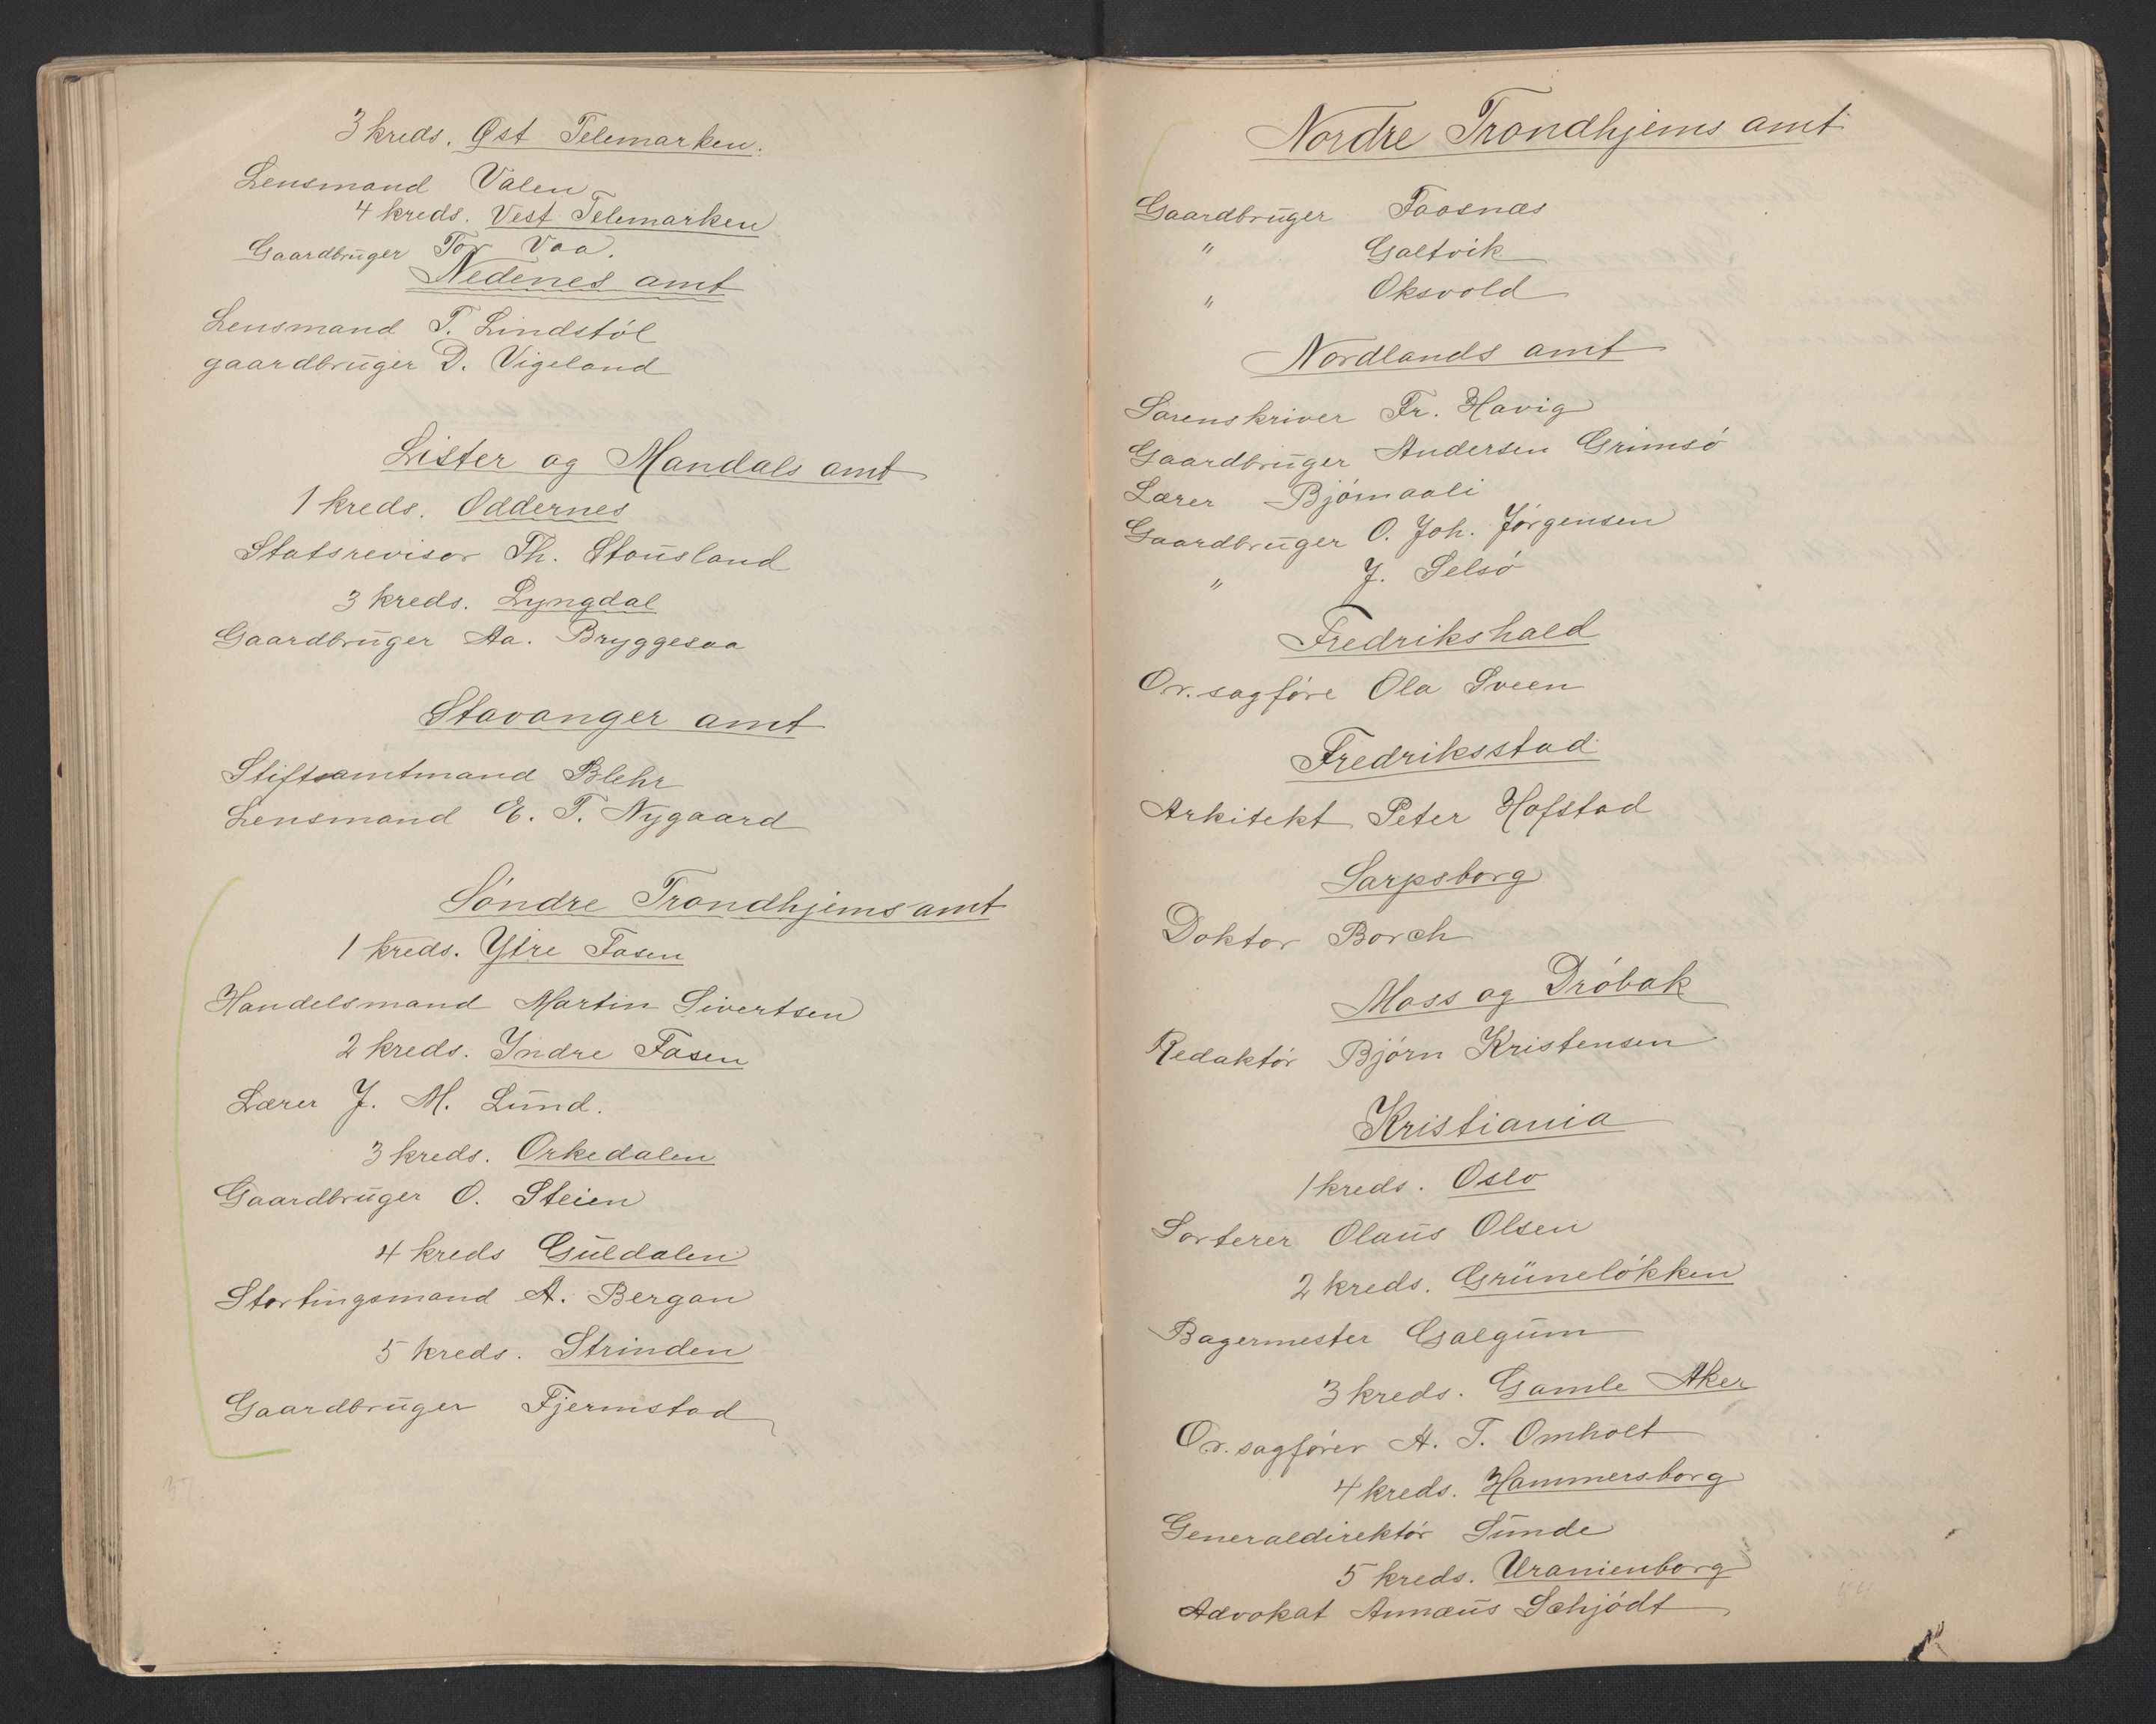 3 kreds. Øst Telemarken.
Lensmand Valen
4 kreds. Vest Telemarken
Gaardbruger Tor Vaa.
Nedenes amt
Lensmand T. Lindstól
gaardbruger D. Vigeland
Lister og Mandals amt
1 kreds. Oddernes
Statsrevisor Th. Stousland
3 kreds. Lyngdal
Gaardbruger Aa. Bryggesaa
Stavanger amt
Stiftsamtmand Blehr
Lensmand E. T. Nygaard
Søndre Trondhjems amt
1 kreds. Ytre Fosen
Handelsmand Martin Sivertsen
2 kreds. Yndre Fosen
Lærer J. M. Lund.
3 kreds. Orkedalen
Gaardbruger O. Steien
4 kreds Guldalen
Stortingsmand A. Bergan
5 kreds. Strinden
Gaardbruger Fjermstad
Nordre Trondhjems amt
Gaardbruger Faosnæs
" Galtvik
" Oksvold
Nordlands amt
Sorenskriver Fr. Havig
Gaardbruger Andersen Grimsó
Lærer Bjórnaali
Gaardbruger O. Joh. Jørgensen
" J. Selsó
Fredrikshald
Or. sagføre Ola Sveen
Fredriksstad
Arkitekt Peter Hofstad
Sarpsborg
Doktor Borch
Moss og Dróbak
Redaktór Bjórn Kristensen
Kristiania
1 kreds. Oslo
Sorterer Olaus Olsen
2 kreds. Grüneløkken
Bagermester Galgum
3 kreds. Gamle Aker
Or. sagfører A. T. Omholt
4 kreds. Hammersborg
Generaldirektór Sunde
5 kreds. Uranienborg
Advokat Annæus Schjódt